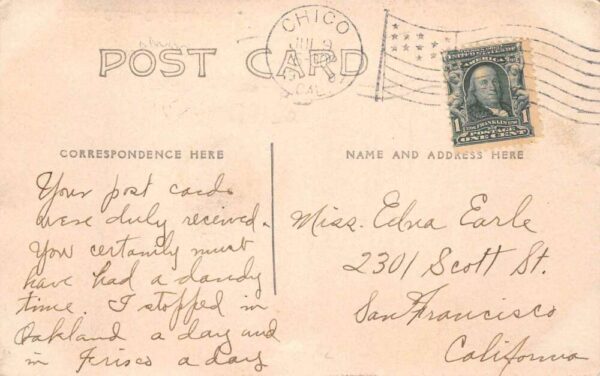 CHICO
JUL 9
CAL.
POST CARD
UNITED STATES OF
AMERICA
FRANKLIN
1 1
POSTAGE
ONE CENT
CORRESPONDENCE HERE
Your post cards
were duly received.
You certainly must
have had a dandy
time. I stopped in
Oakland a day and
in Frisco a day
NAME AND ADDRESS HERE
Miss. Edna Earle
2301 Scott St.
San Francisco
California